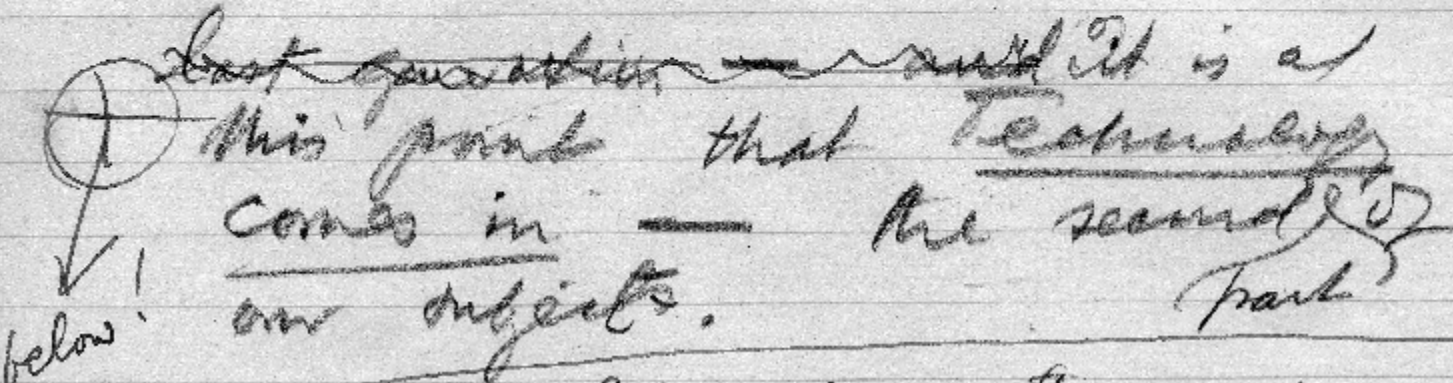 last question — and It is at
this point that Technology
comes in — the second part of
our subjects.
below!